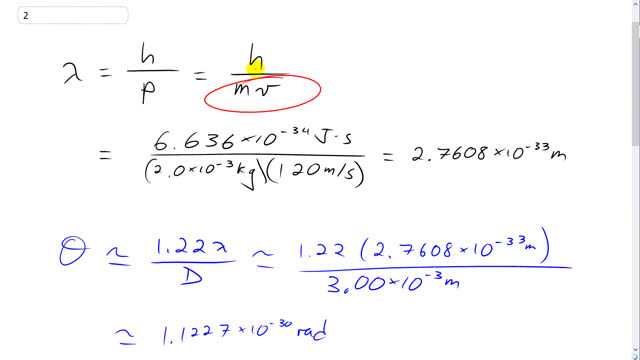 2
λ = h/p = h/mv
= 6.636×10⁻³⁴ J·s / (2.0×10⁻³ kg)(120 m/s) = 2.7608×10⁻³³ m
θ ≃ 1.22λ/D ≃ 1.22 (2.7608×10⁻³³ m) / 3.00×10⁻³ m
≃ 1.1227×10⁻³⁰ rad